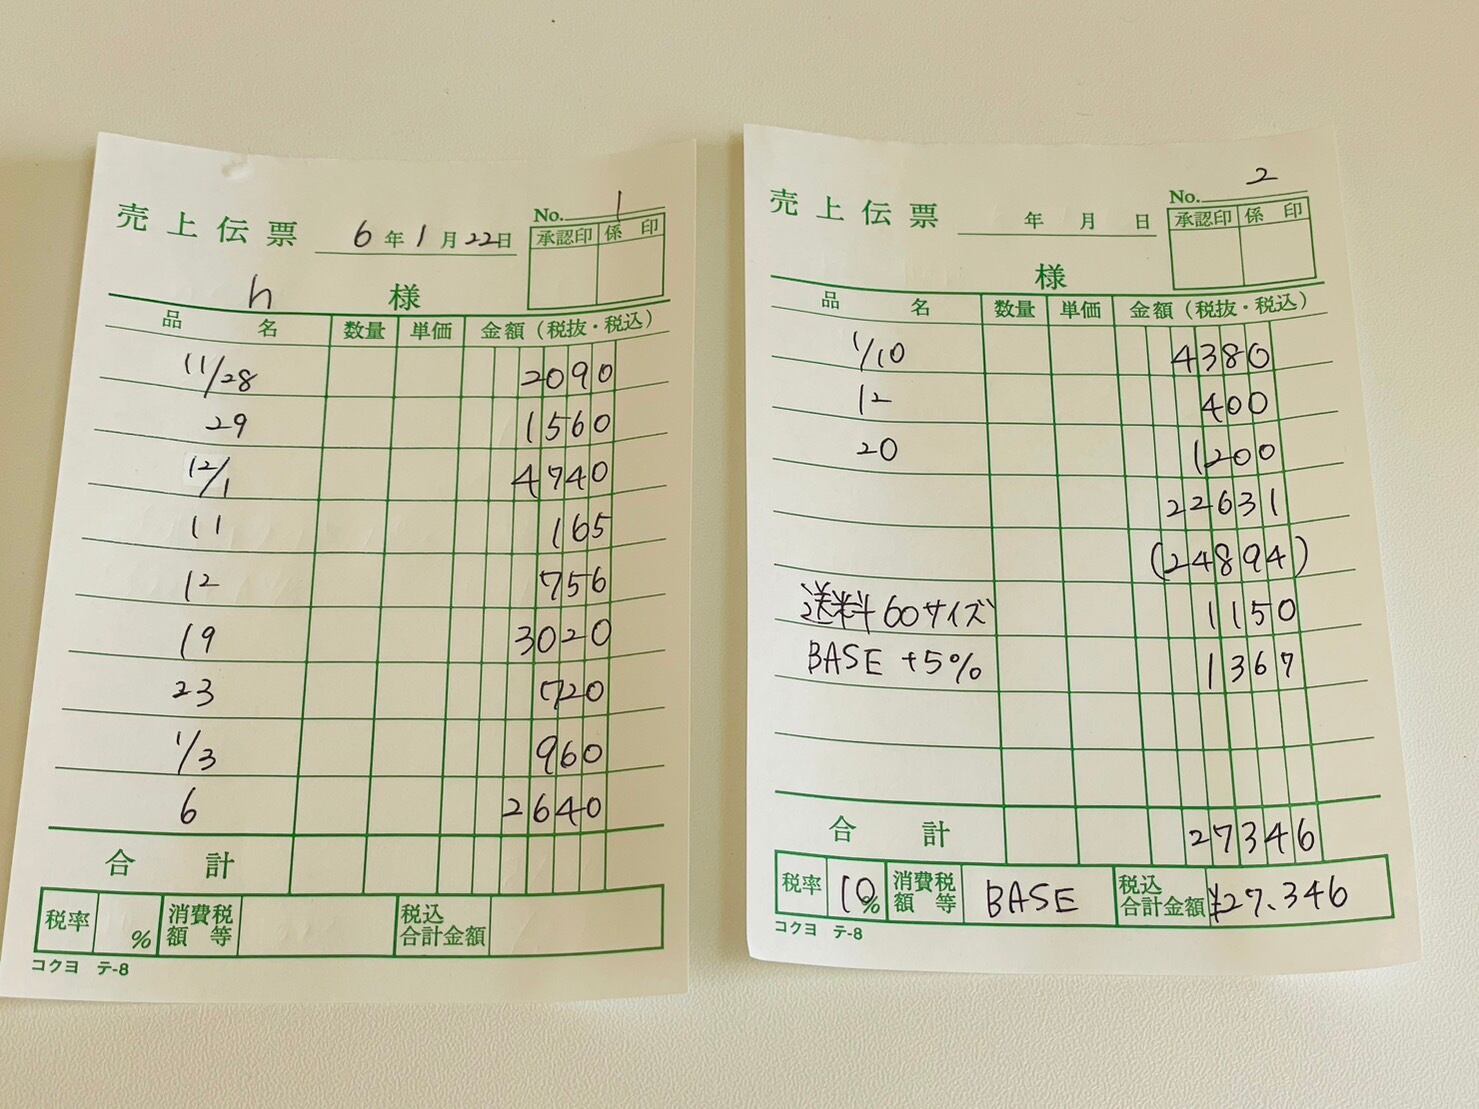 売上伝票 6年1月22日 No. 1
承認印 係印
h 様
品名 数量 単価 金額(税抜・税込)
11/28 2090
29 1560
12/1 4740
11 165
12 756
19 3020
23 720
1/3 960
6 2640
合計
税率 % 消費税額等 税込合計金額
コクヨ テ-8
売上伝票 年 月 日 No. 2
承認印 係印
様
品名 数量 単価 金額(税抜・税込)
1/10 4380
12 400
20 1200
22631
(24894)
送料60サイズ 1150
BASE +5% 1367
合計 27346
税率 10% 消費税額等 BASE 税込合計金額 ¥27.346
コクヨ テ-8